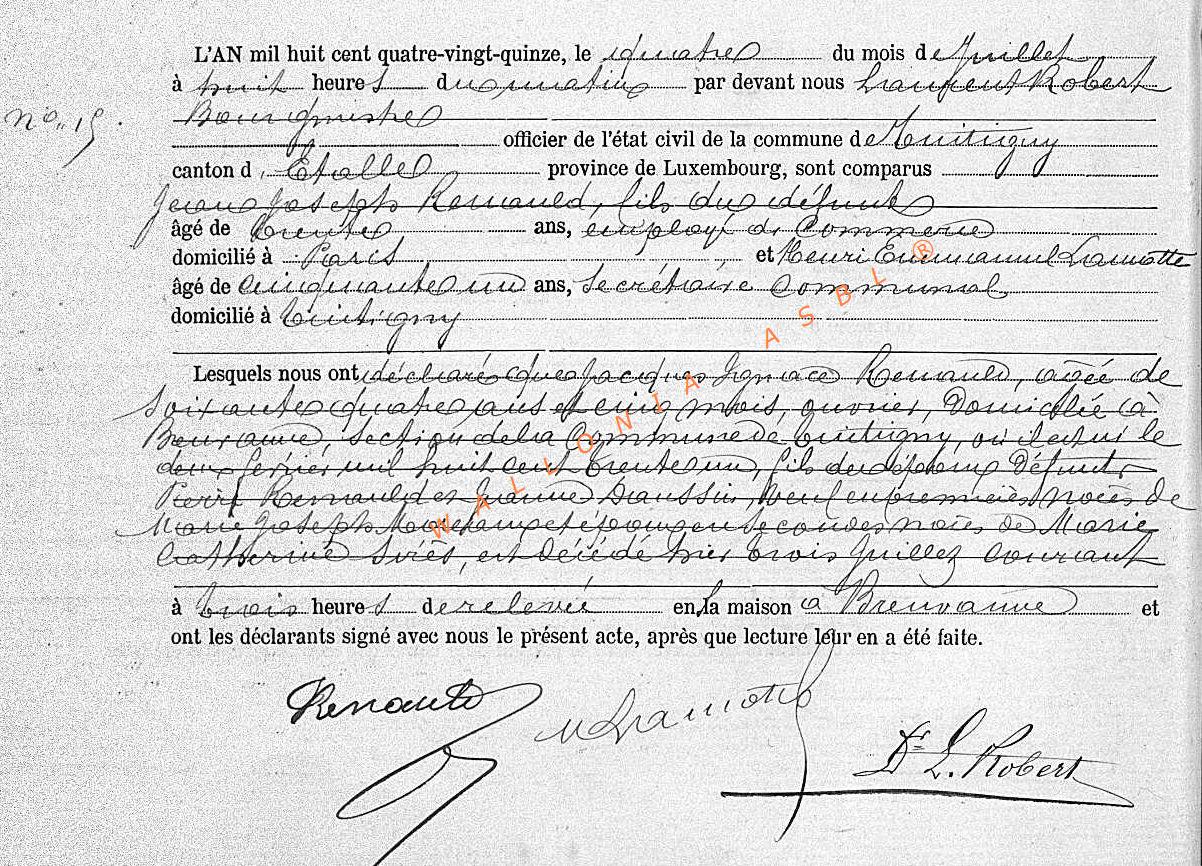 L'AN mil huit cent quatre-vingt-quinze, le quatre du mois de Juillet
à huit heures du matin par devant nous Laurent Robert
no. 15.
Bourgmestre
officier de l'état civil de la commune de Tintigny
canton d'Etalle province de Luxembourg, sont comparus
Jean Joseph Renauld, fils du défunt
âgé de trente ans, employé de Commerce
domicilié à Paris et Henri Emmanuel Lamotte
âgé de cinquante un ans, Secrétaire Communal
domicilié à Tintigny
Lesquels nous ont déclaré que Jacques Ignace Renauld, agée de
soixante quatre ans et cinq mois, ouvrier, Domicilié à
Breuvanne, section de la Commune de Tintigny où il est né le
deux fevrier mil huit cent trente un, fils des époux Défunts
Pierre Renauld et Jeanne, veuf en premières noces de
Marie Joseph et époux en secondes noces de Marie
Catherine, est décédé hier trois Juillet Courant
à trois heures de relevée en la maison à Breuvanne et
ont les déclarants signé avec nous le présent acte, après que lecture leur en a été faite.
Renauld Lamotte Dr L. Robert
WALLONIA ASBL ®